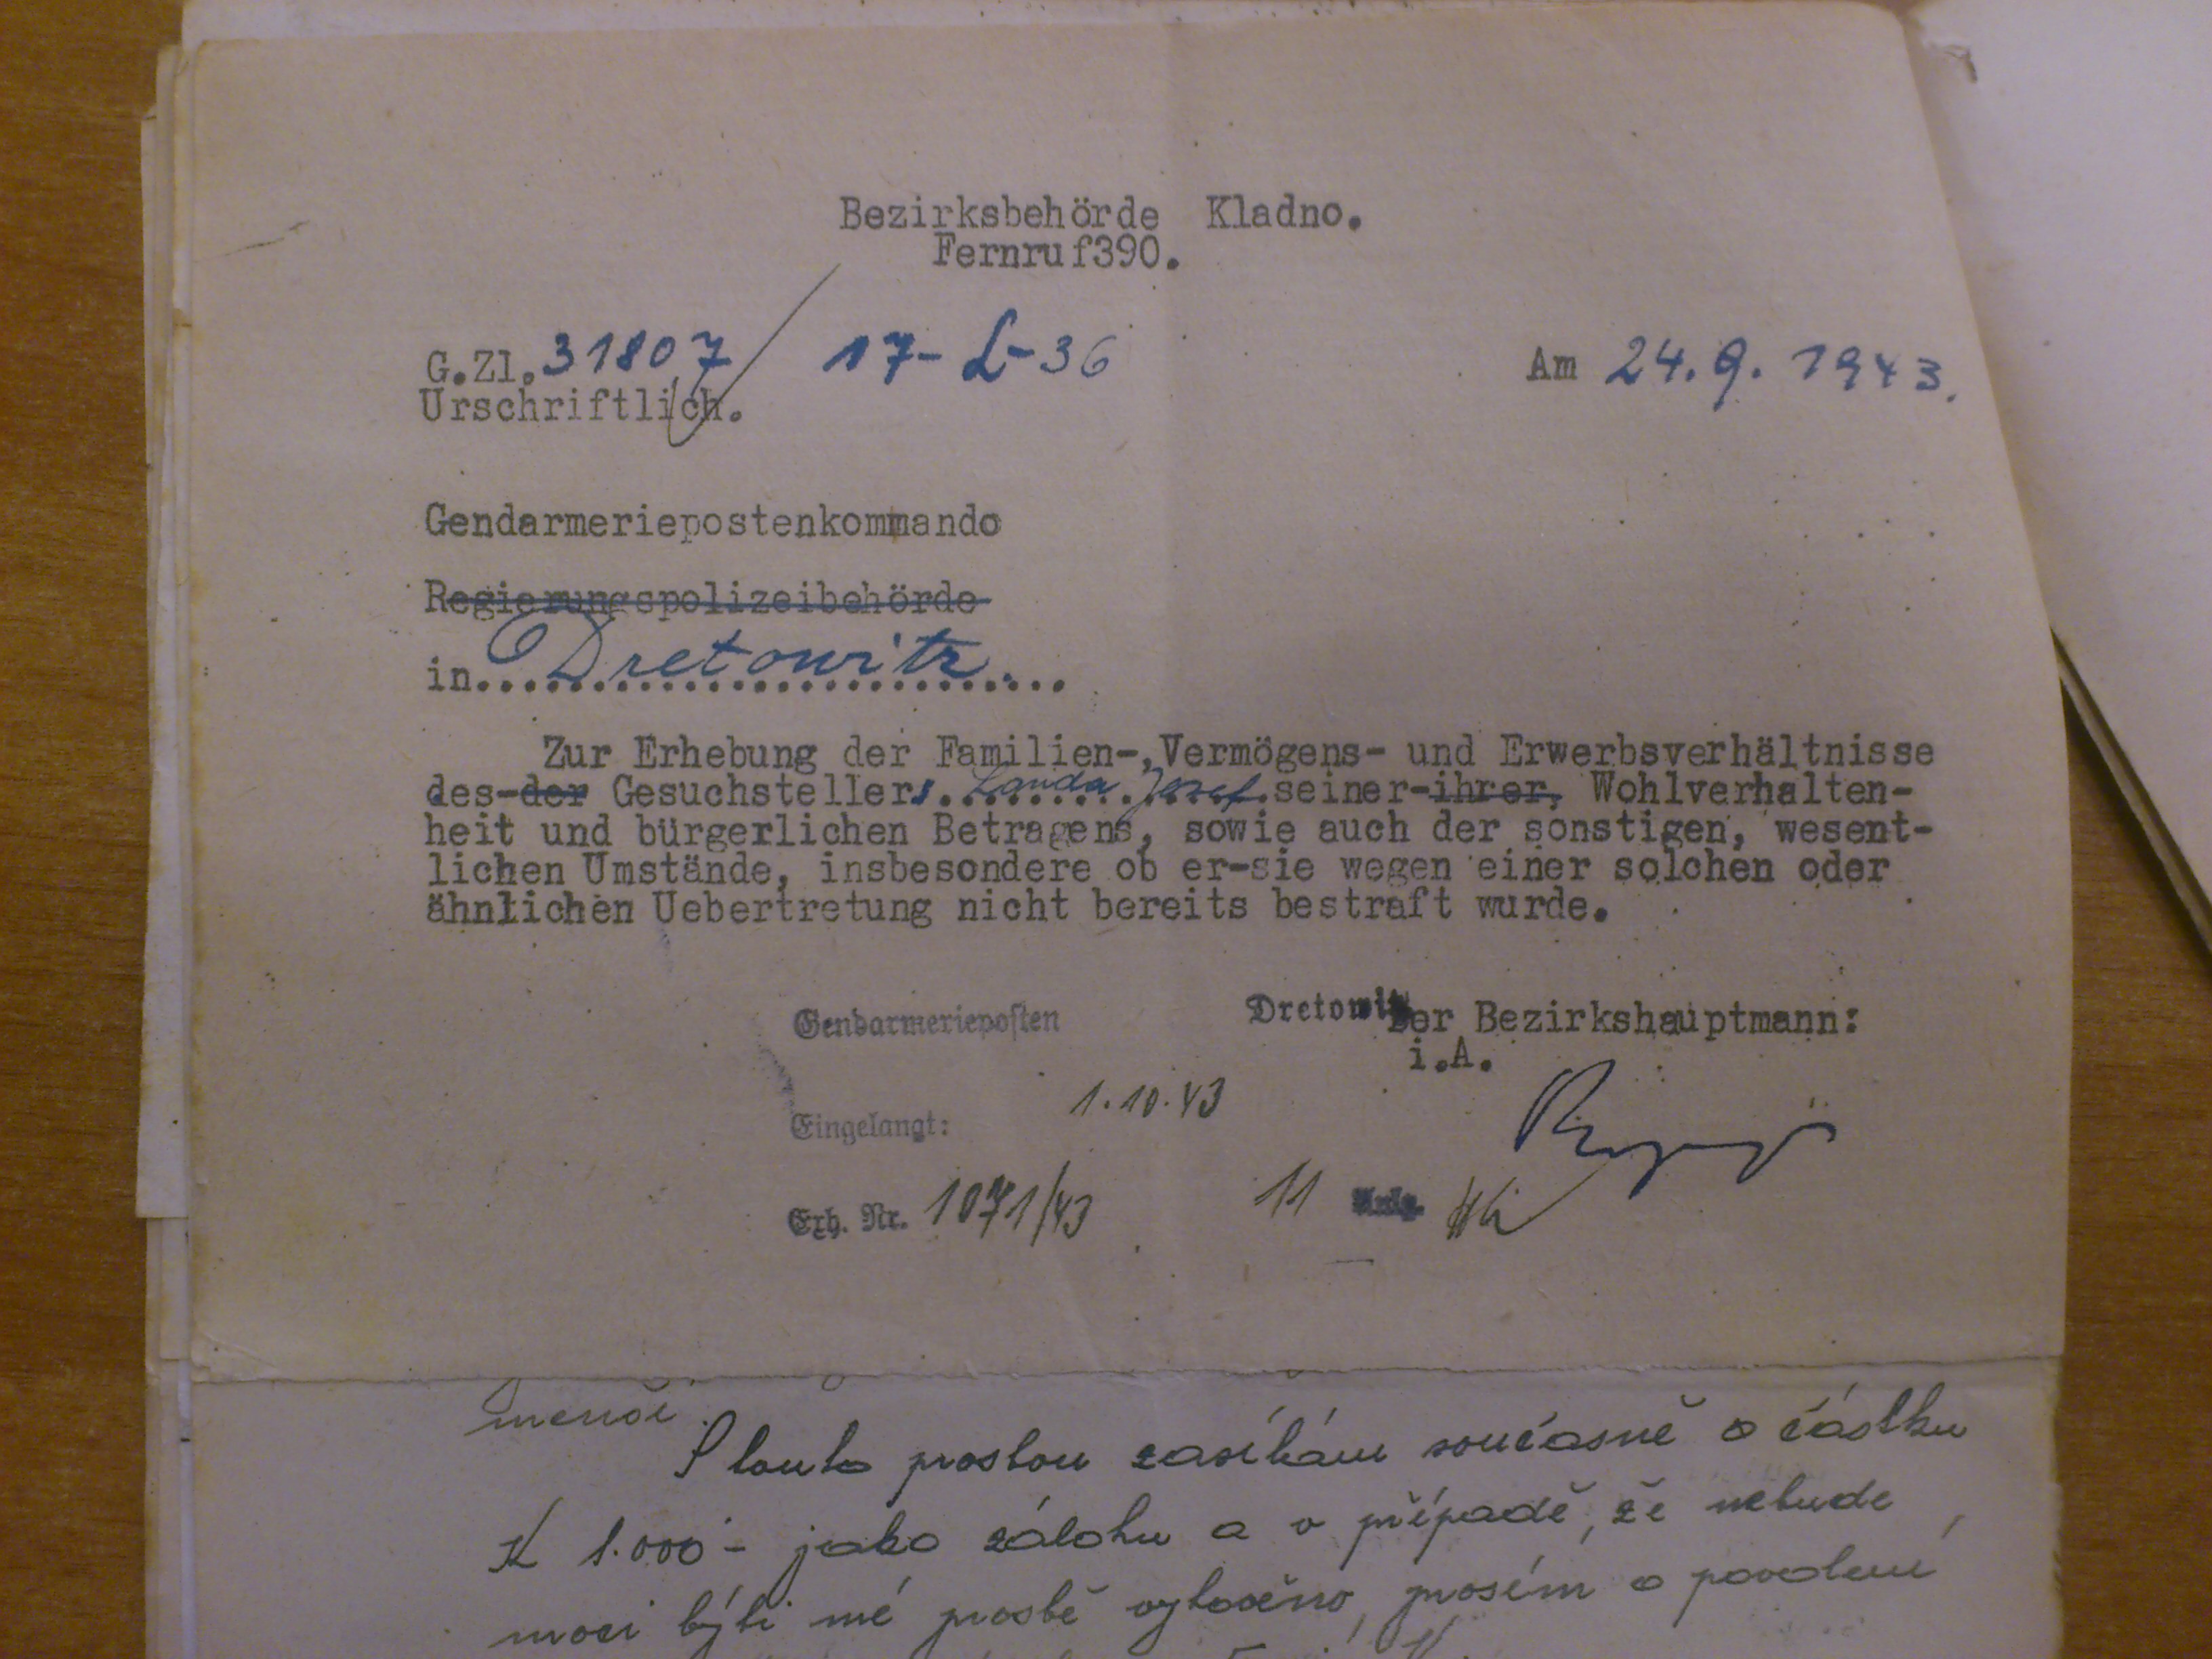 Bezirksbehörde Kladno.
Fernruf390.
G.Zl.31807/ 17-L-36
Am 24.9.1943.
Urschriftlich.
Gendarmeriepostenkommando
Regierungspolizeibehörde
in Dretowitz
Zur Erhebung der Familien-,Vermögens- und Erwerbsverhältnisse
des-der Gesuchstellers. Landa Josef.seiner-ihrer, Wohlverhalten-
heit und bürgerlichen Betragens, sowie auch der sonstigen, wesent-
lichen Umstände, insbesondere ob er-sie wegen einer solchen oder
ähnlichen Uebertretung nicht bereits bestraft wurde.
Gendarmerieposten Dretowitz
Der Bezirkshauptmann:
i.A.
Eingelangt: 1.10.43
Exh. Nr. 1071/43 11 Anlg.
S touto prosbou zasílám současně částku
K 1.000- jako zálohu a v případě, že nebude
moci býti mé prosbě vyhověno, prosím o povolení